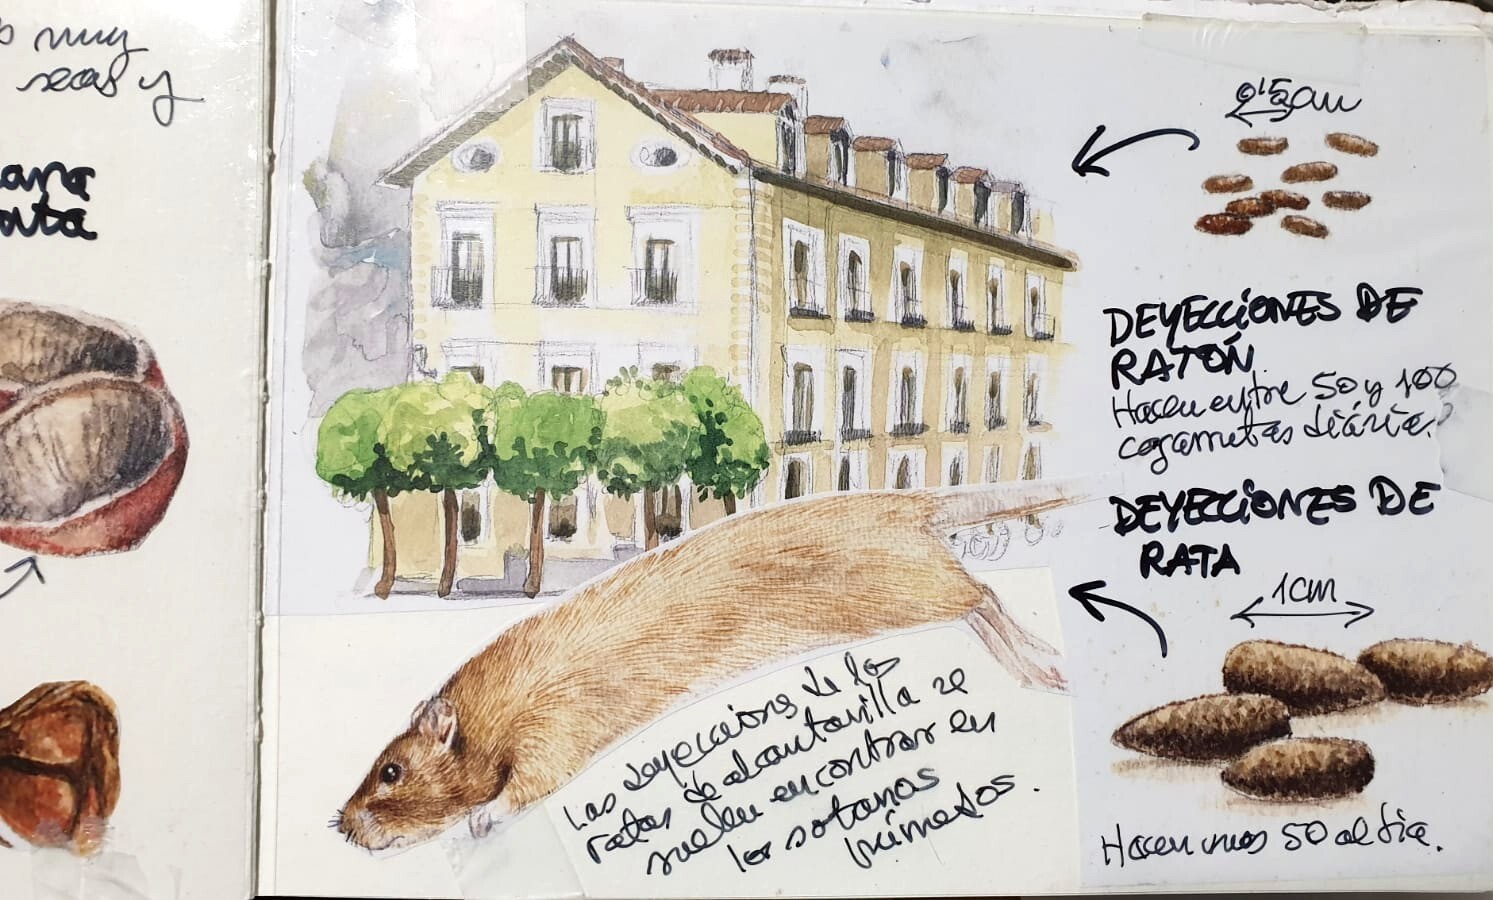 muy
secas y
0'5 cm
DEYECCIONES DE
RATÓN
Hacen entre 50 y 100
cagarrutas diária.
DEYECCIONES DE
RATA
1cm
Las deyeccions de las
ratas de alcantarilla se
suelen encontrar en
los sotanos
húmedos.
Hacen unas 50 al dia.